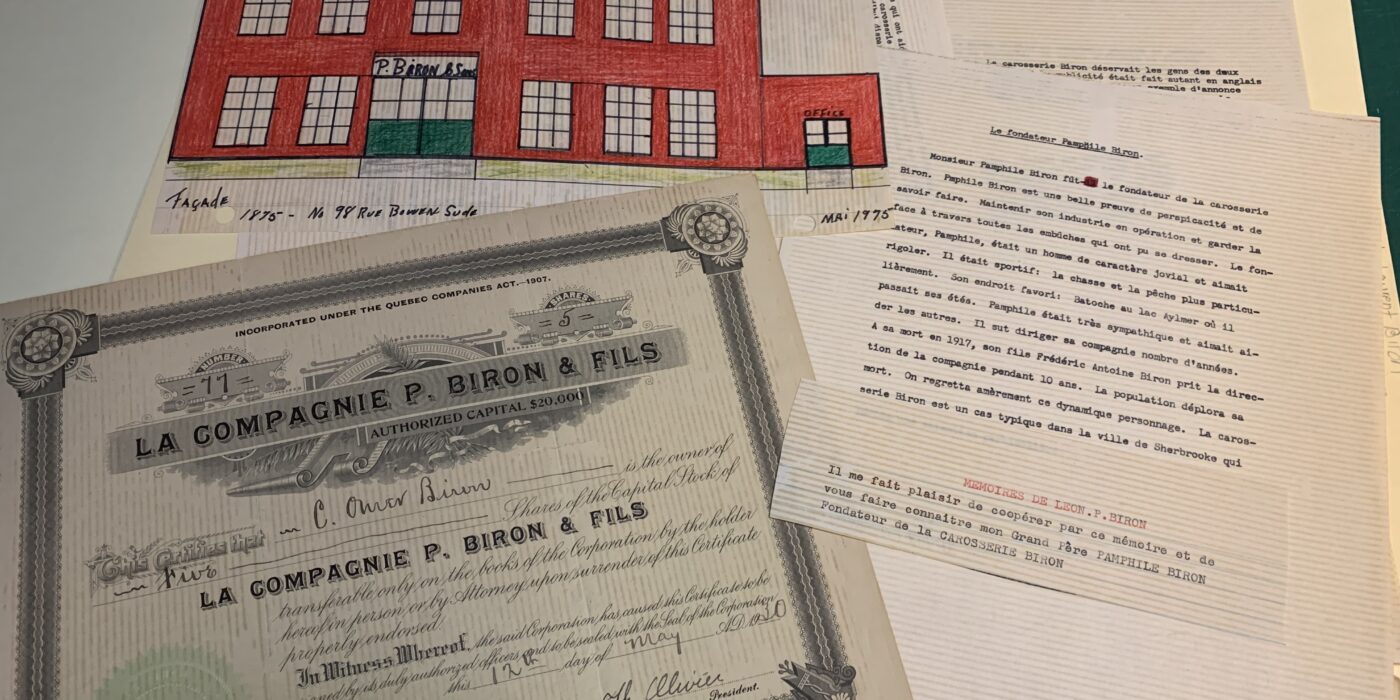 P. BIRON & Sons
OFFICE
FAÇADE
1875 - No 98 RUE BOWEN SUDE
MAI 1975
INCORPORATED UNDER THE QUEBEC COMPANIES ACT.-1907.
NUMBER
77
SHARES
5
LA COMPAGNIE P. BIRON & FILS
AUTHORIZED CAPITAL $20,000
This Certifies that C. Omer Biron is the owner of
Five Shares of the Capital Stock of
LA COMPAGNIE P. BIRON & FILS
transferable only on the books of the Corporation by the holder
hereof in person or by Attorney upon surrender of this Certificate
properly endorsed.
In Witness Whereof, the said Corporation has caused this Certificate to be
signed by its duly authorized officers and to be sealed with the Seal of the Corporation
this 12th day of May A.D. 1930
Olivier
President.
qui ont
carosserie
La carosserie Biron déservait les gens des deux
publicité était fait autant en anglais
exemple d'annonce
Le fondateur Pamphile Biron.
Monsieur Pamphile Biron fût le fondateur de la carosserie
Biron. Pmphile Biron est une belle preuve de perspicacité et de
savoir faire. Maintenir son industrie en opération et garder la
face à travers toutes les embûches qui ont pu se dresser. Le fon-
ateur, Pamphile, était un homme de caractère jovial et aimait
rigoler. Il était sportif: la chasse et la pêche plus particu-
lièrement. Son endroit favori: Batoche au lac Aylmer où il
passait ses étés. Pamphile était très sympathique et aimait ai-
der les autres. Il sut diriger sa compagnie nombre d'années.
A sa mort en 1917, son fils Frédéric Antoine Biron prit la direc-
tion de la compagnie pendant 10 ans. La population déplora sa
mort. On regretta amèrement ce dynamique personnage. La caros-
serie Biron est un cas typique dans la ville de Sherbrooke qui
MEMOIRES DE LEON.P.BIRON
Il me fait plaisir de coopérer par ce mémoire et de
vous faire connaitre mon Grand Père PAMPHILE BIRON
Fondateur de la CAROSSERIE BIRON